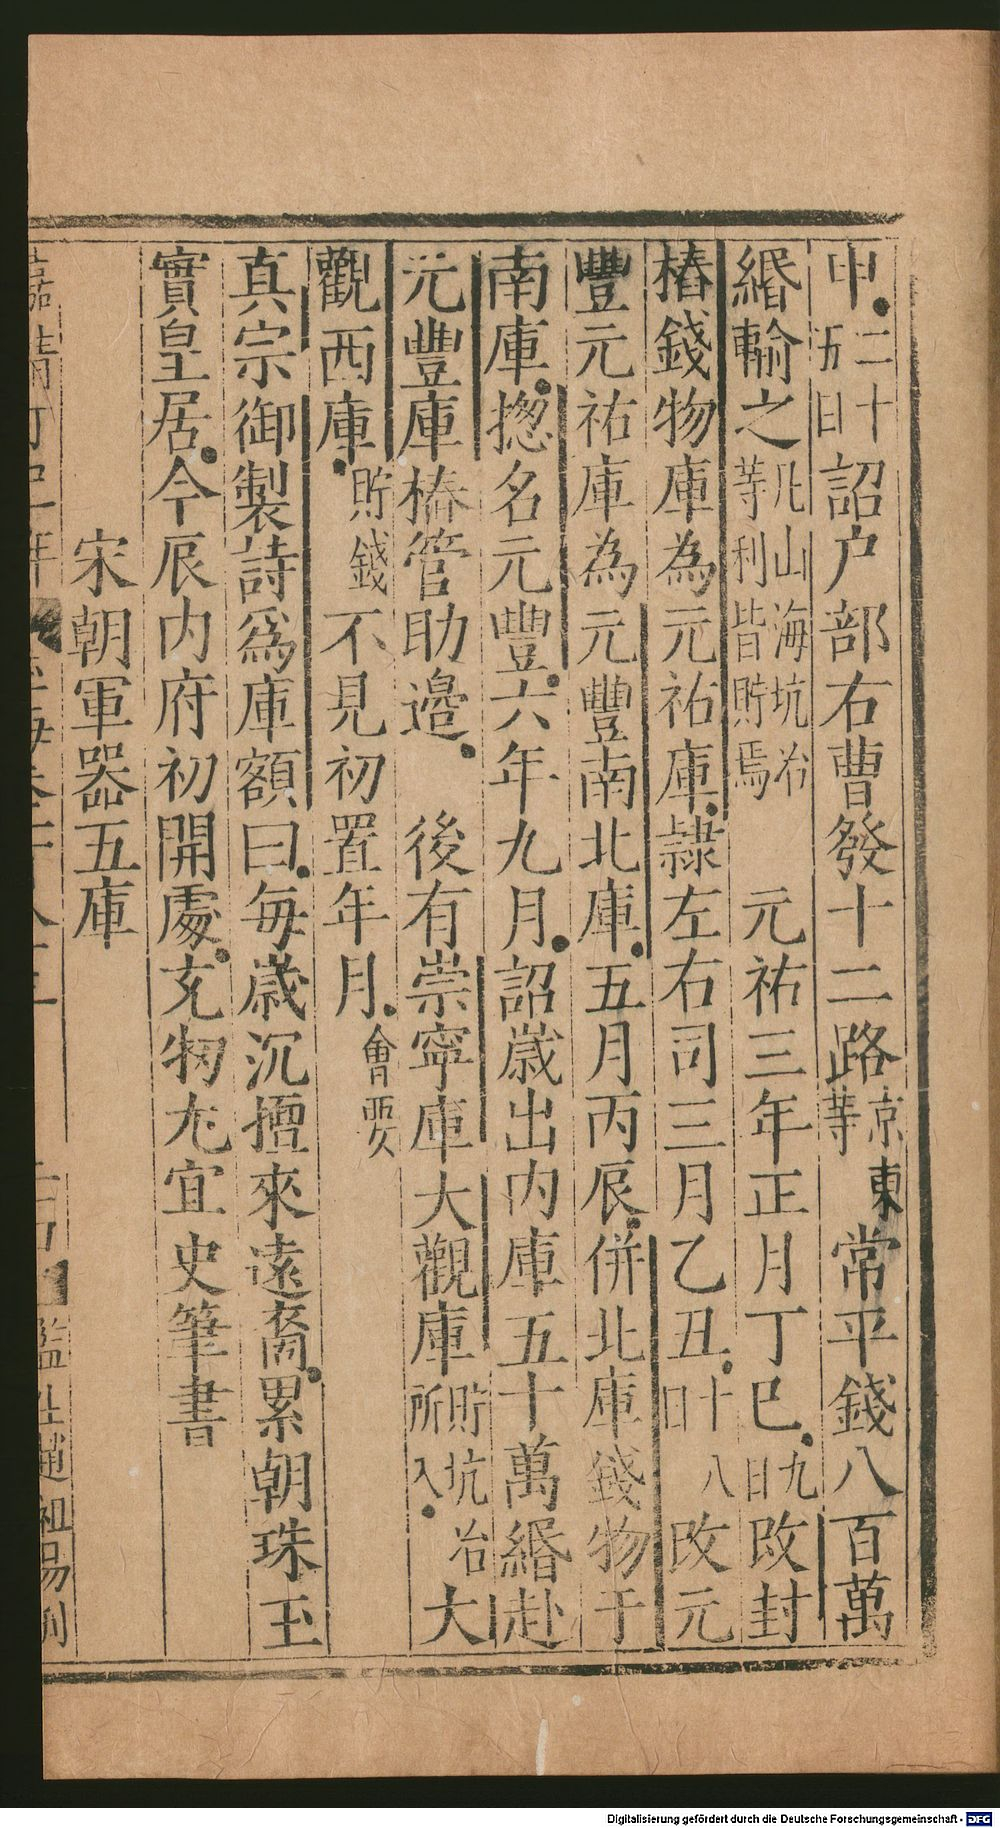 申二十五日詔户部右曹發十二路京東等常平錢八百萬
緡輸之凡山海坑冶等利皆貯焉 元祐三年正月丁巳九日改封
樁錢物庫為元祐庫隷左右司三月乙丑十八日改元
豐元祐庫為元豐南北庫五月丙辰併北庫錢物于
南庫揔名元豐六年九月詔歳出内庫五十萬緡赴
元豐庫樁管助邉 後有崇寧庫大觀庫貯坑冶所入大
觀西庫貯錢不見初置年月會要
真宗御製詩爲庫額曰毎歳沉檀來遠裔累朝珠玉
實皇居今辰内府初開處充牣尤宜史筆書
宋朝軍器五庫
監生趙祖易刊
Digitalisierung gefördert durch die Deutsche Forschungsgemeinschaft - DFG